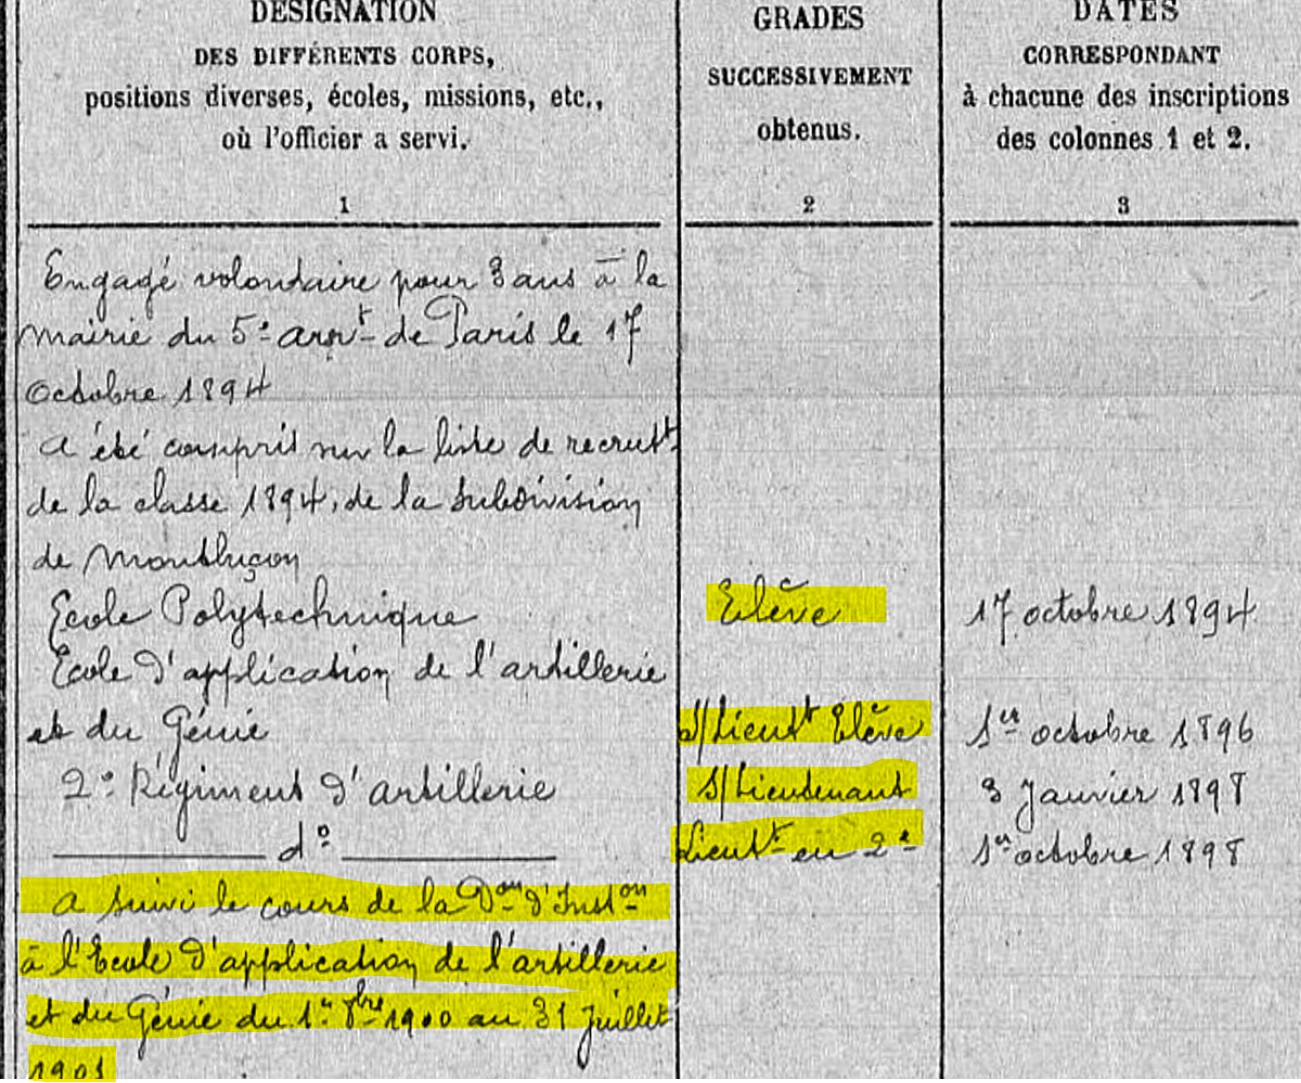 DÉSIGNATION
DES DIFFÉRENTS CORPS,
positions diverses, écoles, missions, etc.,
où l'officier a servi.
1
GRADES
SUCCESSIVEMENT
obtenus.
2
DATES
CORRESPONDANT
à chacune des inscriptions
des colonnes 1 et 2.
3
Engagé volontaire pour 3 ans à la
mairie du 5e arrt de Paris le 17
octobre 1894
a été compris sur la liste de recrutt
de la classe 1894, de la subdivision
de Montluçon
Ecole Polytechnique Elève 17 octobre 1894
Ecole d'application de l'artillerie
et du Génie S/Lieutt Elève 1er octobre 1896
2e Régiment d'artillerie S/Lieutenant 3 Janvier 1898
do Lieutt en 2e 1er octobre 1898
a suivi le cours de la Don d'Inston
à l'Ecole d'application de l'artillerie
et du Génie du 1er 8bre 1900 au 31 Juillet
1901